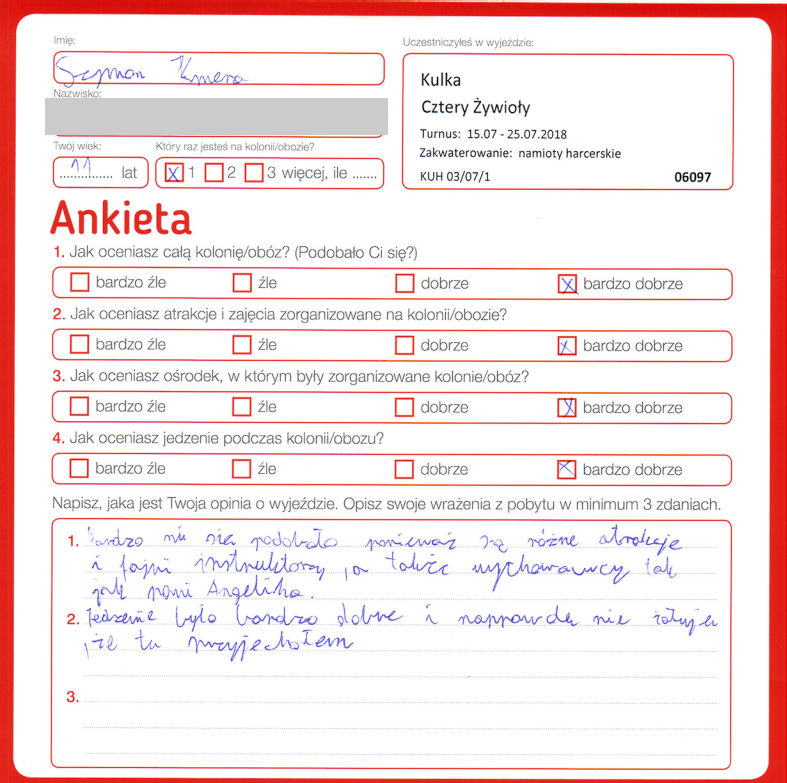 Imię:
Uczestniczyłeś w wyjeździe:
Szymon Kmera
Kulka
Nazwisko:
Cztery Żywioły
Turnus: 15.07 - 25.07.2018
Twój wiek:
Który raz jesteś na kolonii/obozie?
Zakwaterowanie: namioty harcerskie
11 lat
x 1 2 3 więcej, ile .......
KUH 03/07/1 06097
Ankieta
1. Jak oceniasz całą kolonię/obóz? (Podobało Ci się?)
bardzo źle źle dobrze x bardzo dobrze
2. Jak oceniasz atrakcje i zajęcia zorganizowane na kolonii/obozie?
bardzo źle źle dobrze x bardzo dobrze
3. Jak oceniasz ośrodek, w którym były zorganizowane kolonie/obóz?
bardzo źle źle dobrze x bardzo dobrze
4. Jak oceniasz jedzenie podczas kolonii/obozu?
bardzo źle źle dobrze x bardzo dobrze
Napisz, jaka jest Twoja opinia o wyjeździe. Opisz swoje wrażenia z pobytu w minimum 3 zdaniach.
1. Bardzo mi się podobało ponieważ są różne atrakcje
i fajni instruktorzy, a także wychowawcy tak
jak pani Angelika.
2. Jedzenie było bardzo dobre i naprawdę nie żałuję
, że tu przyjechałem
3.